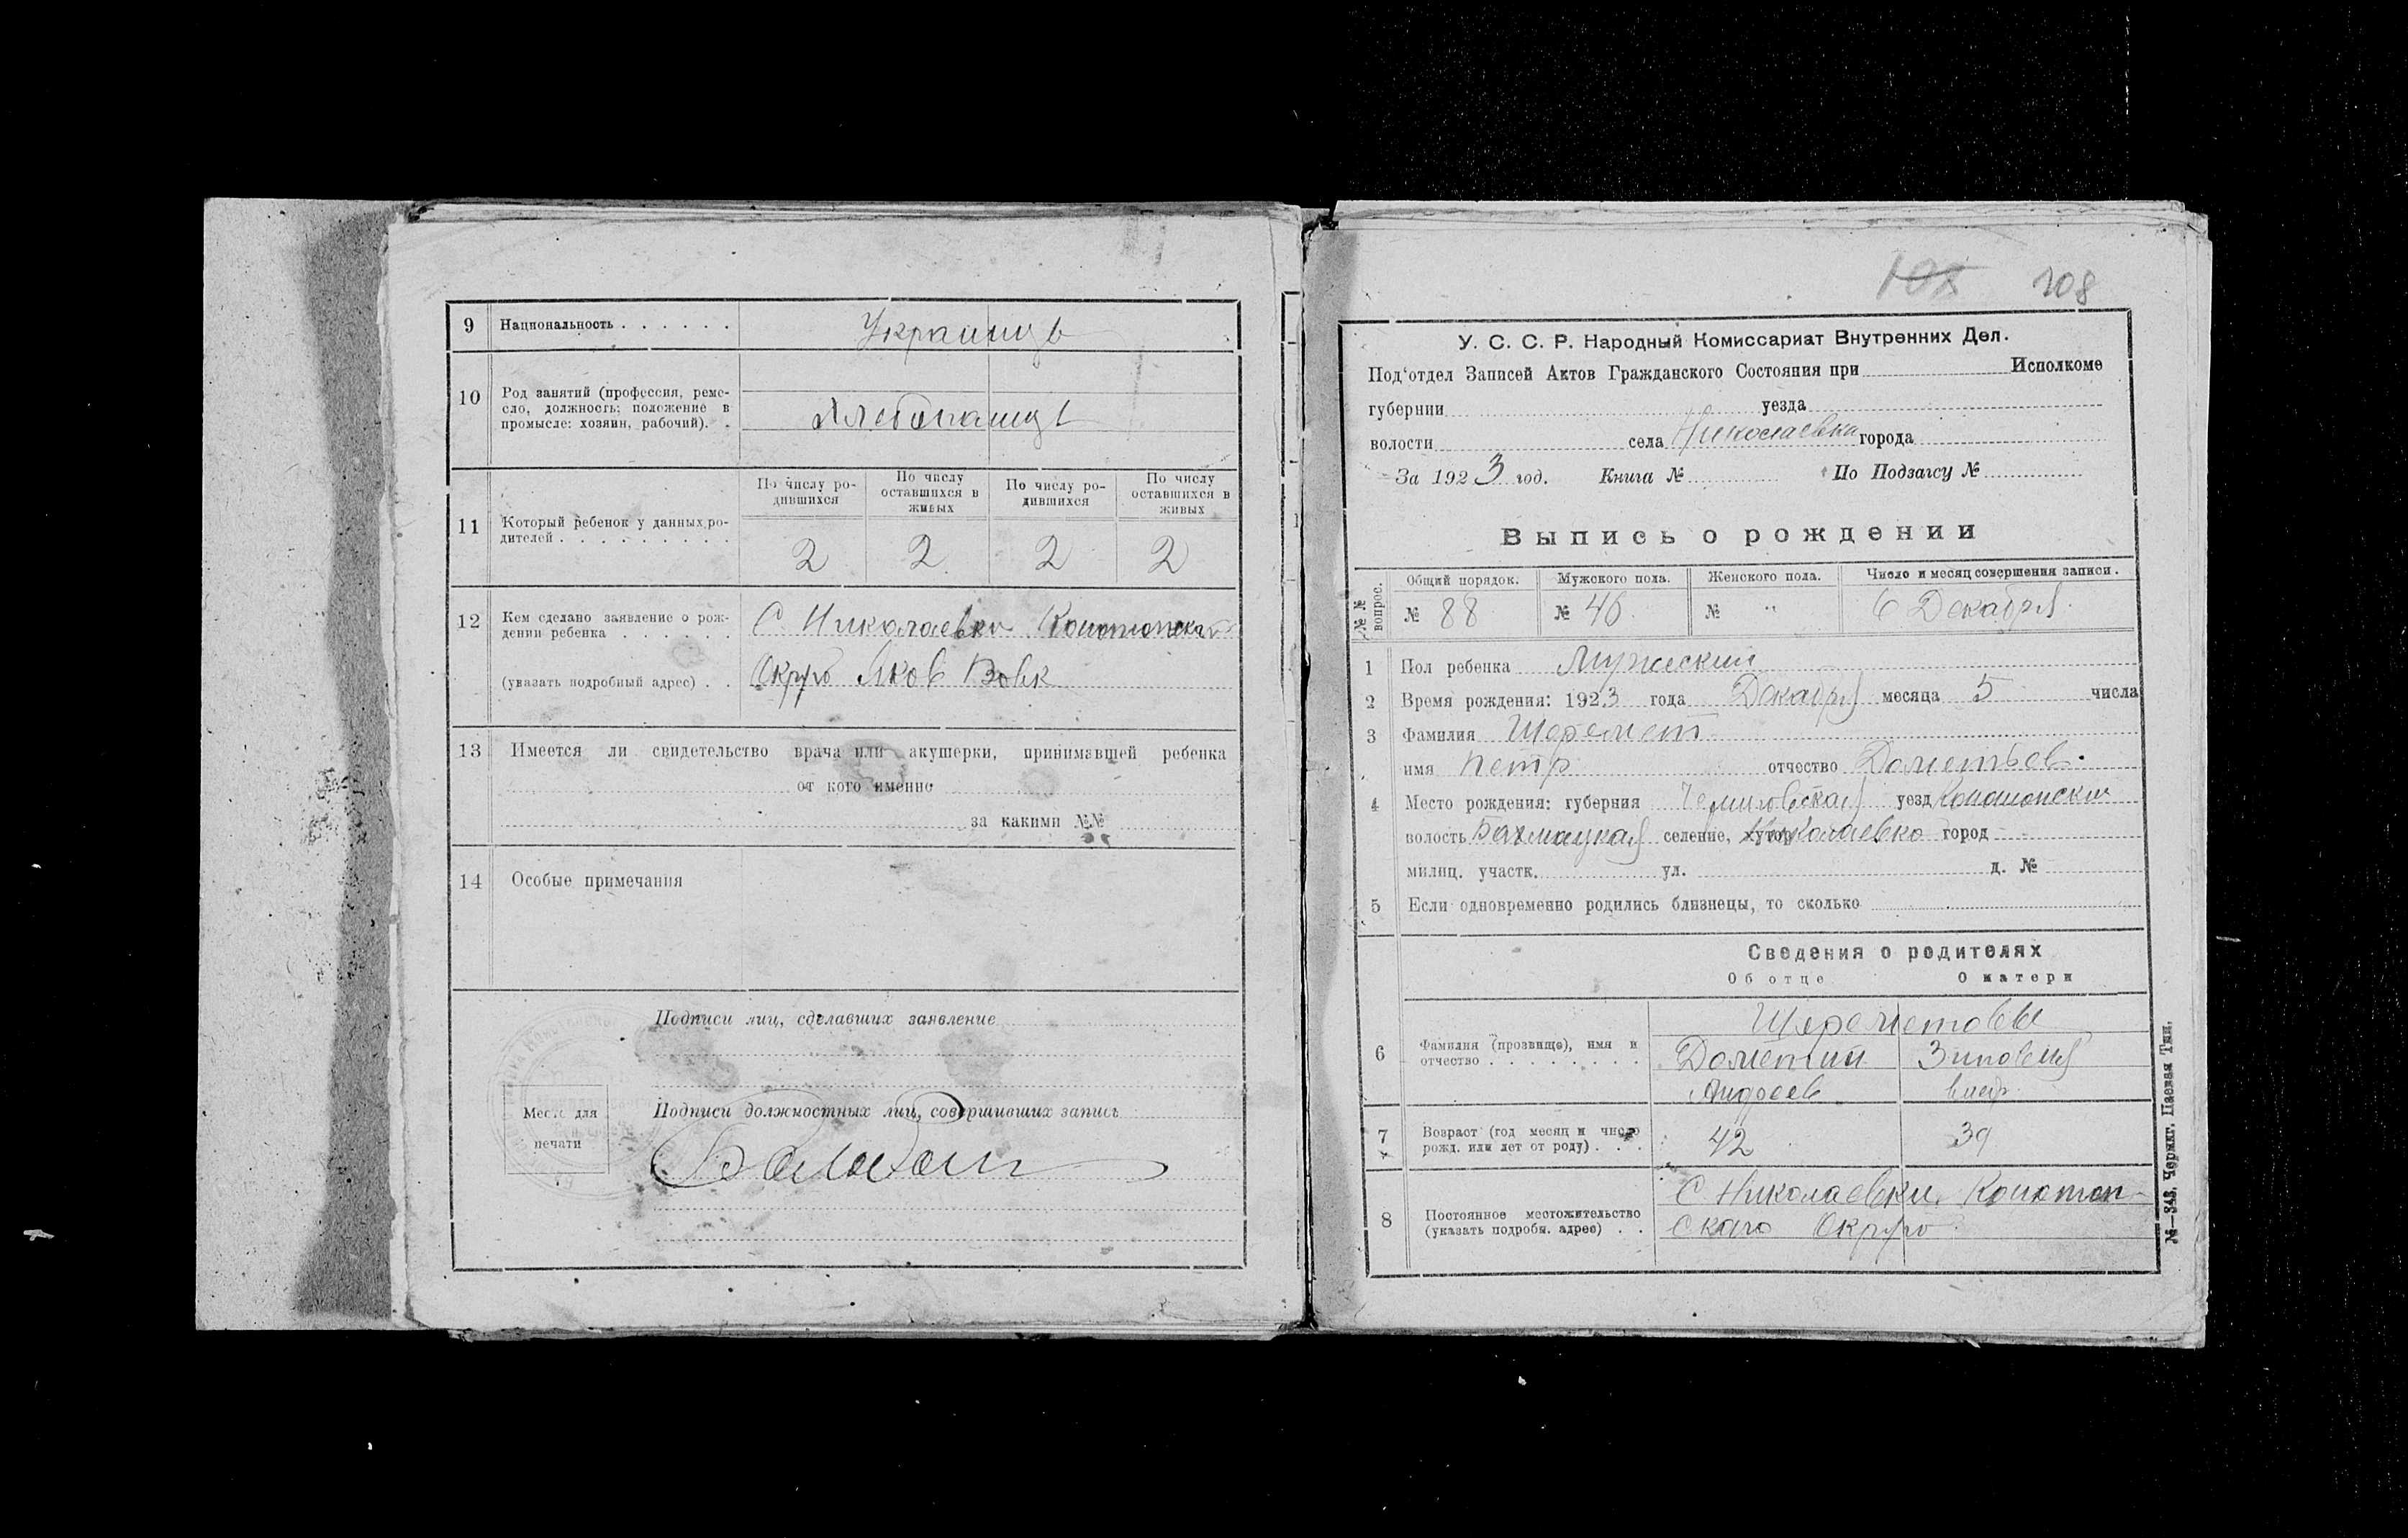 9 Национальность . . . . . .
Украинцы
10 Род занятий (профессия, реме-
сло, должность; положение в
промысле: хозяин, рабочий). .
Хлебопашцы
11 Который ребенок у данных ро-
дителей . . . . . . . . .
По числу ро-
дившихся
По числу
оставшихся в
живых
По числу ро-
дившихся
По числу
оставшихся в
живых
2 2 2 2
12 Кем сделано заявление о рож-
дении ребенка . . . . . .
(указать подробный адрес) . .
С. Николаевки Конотопскаго
Округа Яков Вовк
13 Имеется ли свидетельство врача или акушерки, принимавшей ребенка
от кого именно
за какими №№
14 Особые примечания
Подписи лиц, сделавших заявление
Место для
печати
Подписи должностных лиц, совершивших запись
108
У. С. С. Р. Народный Комиссариат Внутренних Дел.
Под‘отдел Записей Актов Гражданского Состояния при Исполкоме
губернии уезда
волости села Николаевки города
За 1923 год. Книга № По Подзагсу №
Выпись о рождении
№№ вопрос.
Общий порядок. Мужского пола. Женского пола. Число и месяц совершения записи.
№ 88 № 46 № „ 6 Декабря
1 Пол ребенка Мужеский
2 Время рождения: 1923 года Декабря месяца 5 числа
3 Фамилия Шеремет
имя Петр отчество Дометьев.
4 Место рождения: губерния Черниговская уезд Конотопский
волость Бахмацкая селение, хутор Николаевка город
милиц. участк. ул. д. №
5 Если одновременно родились близнецы, то сколько
Сведения о родителях
Об отце О матери
6 Фамилия (прозвище), имя и
отчество . . . . . . . . .
Шереметовы
Дометий Зиновия
Андреев
7 Возраст (год месяц и число
рожд. или лет от роду) . . .
42 39
8 Постоянное местожительство
(указать подробн. адрес) . .
С Николаевки. Конотоп-
скаго Округа
№—343. Черниг. Паевая Тип.